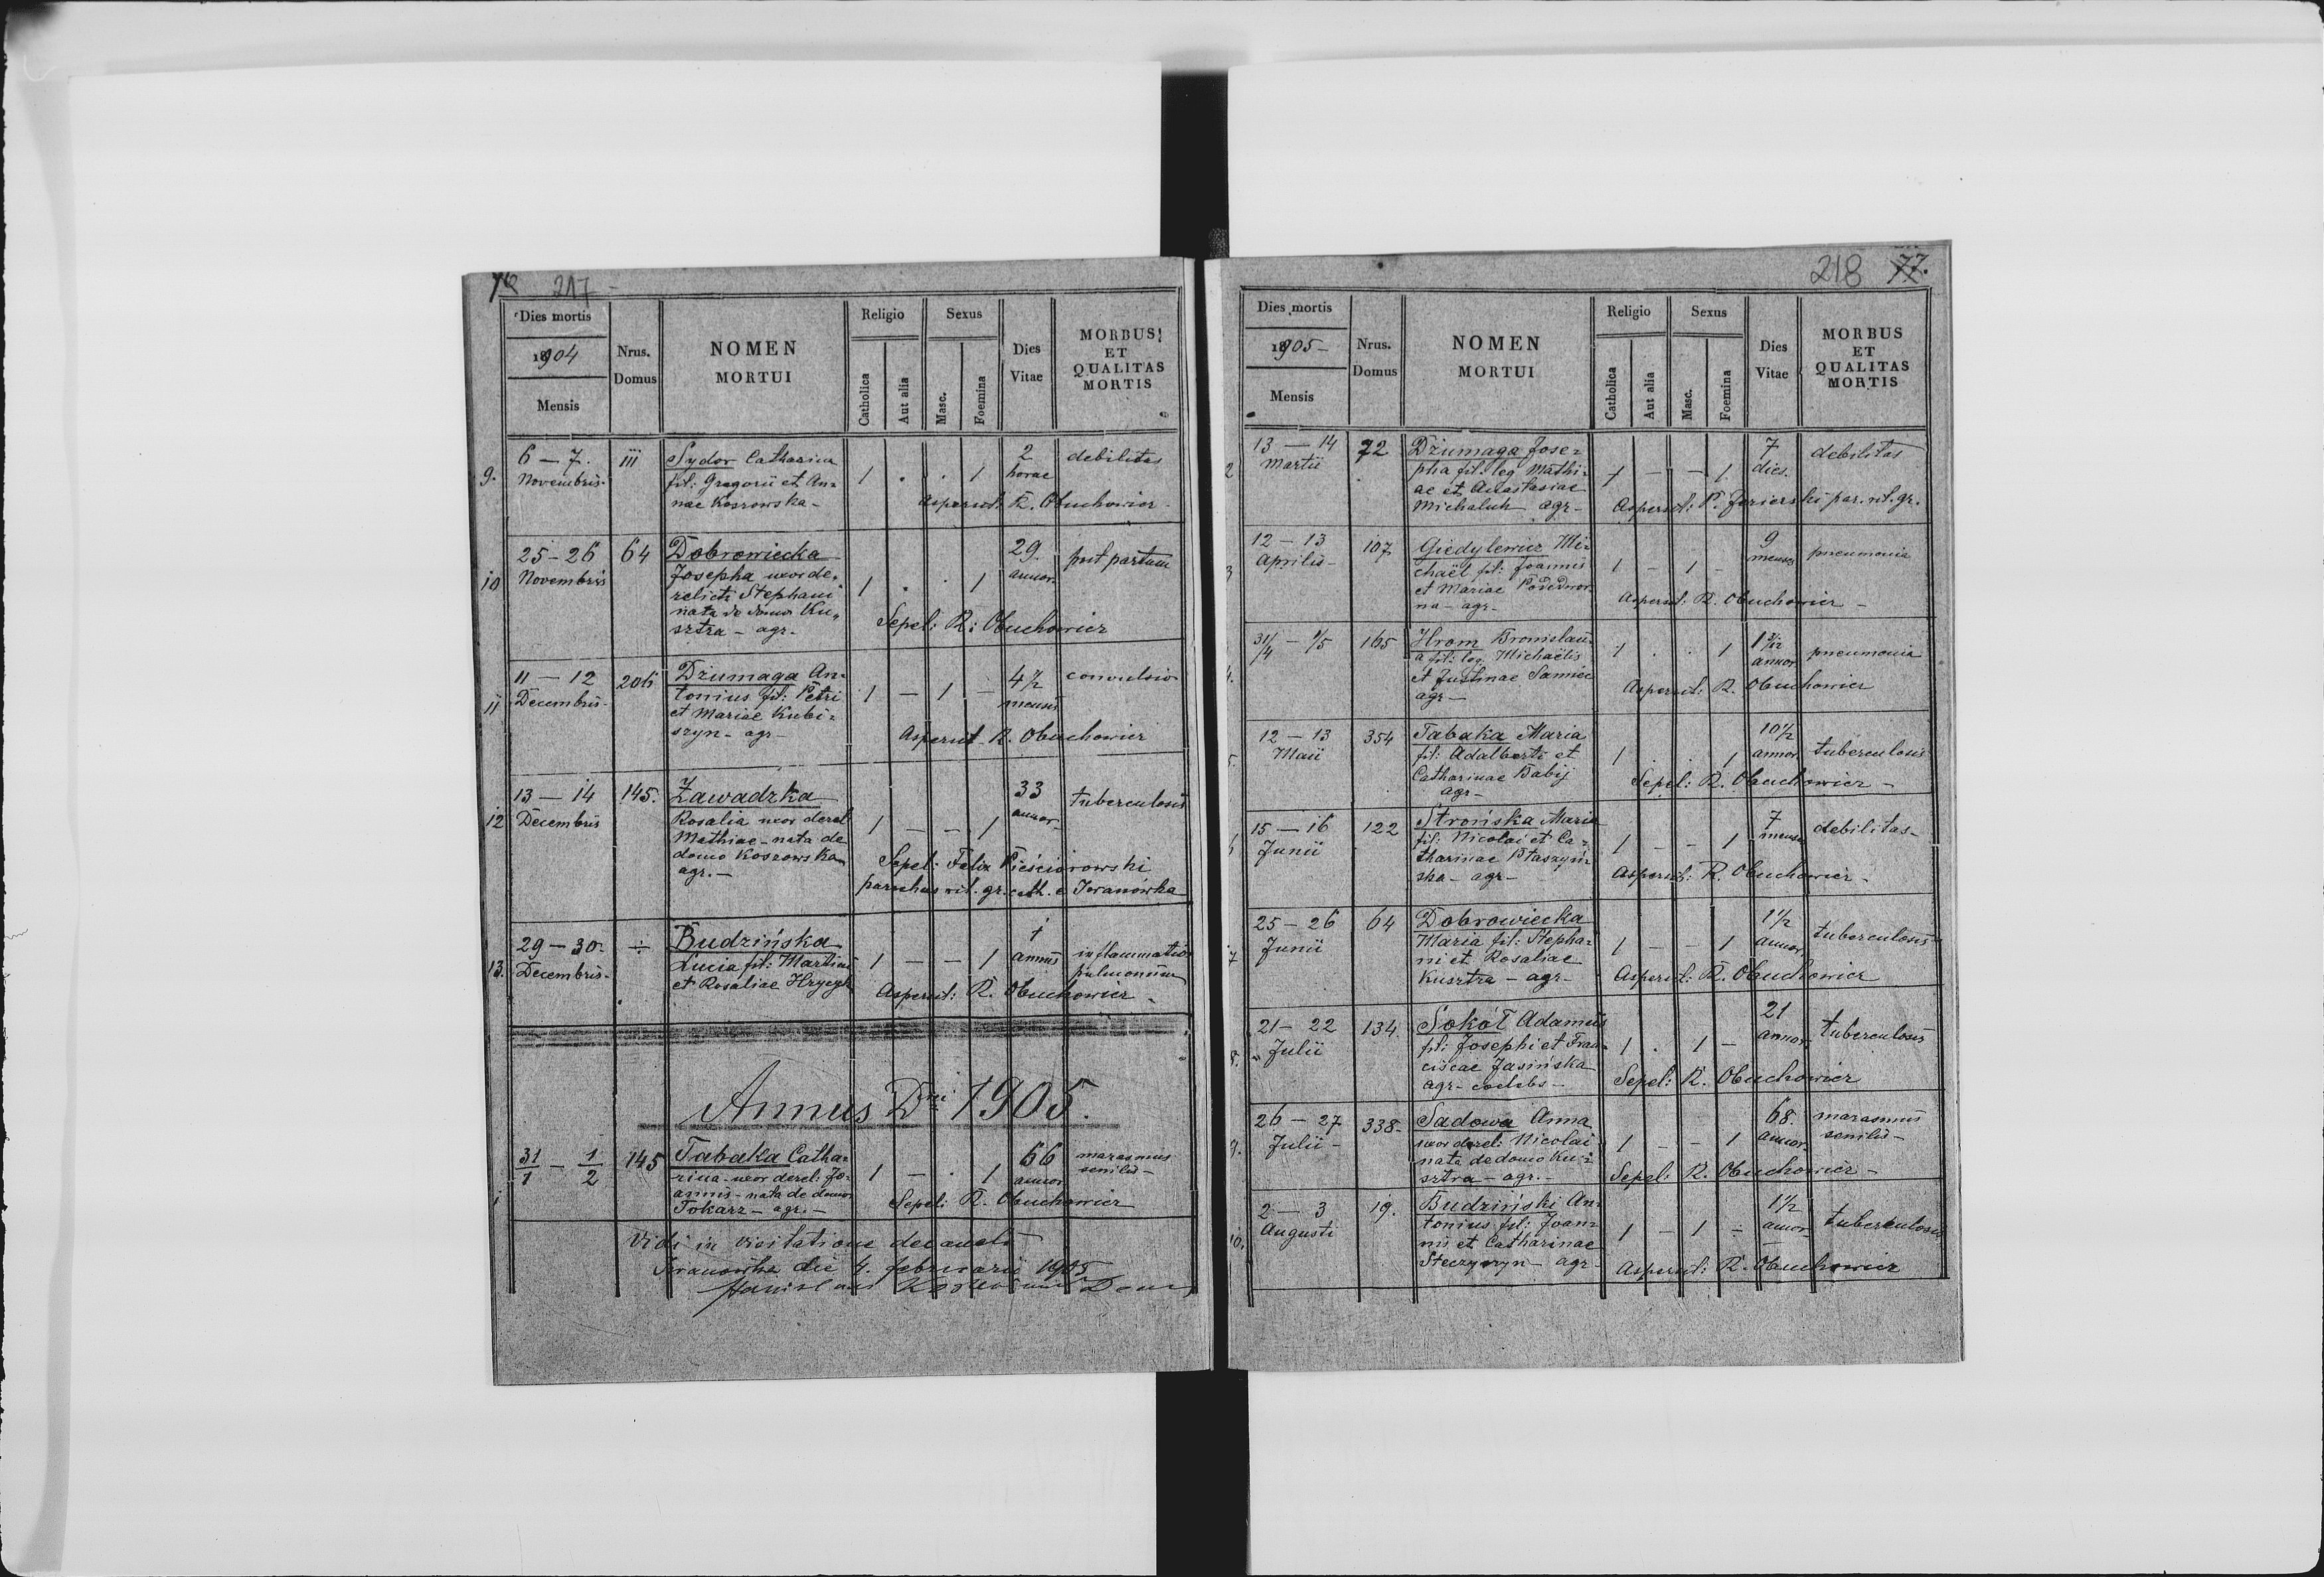 76 217 -
Dies mortis
1904
Mensis
Nrus.
Domus
NOMEN
MORTUI
Religio
Catholica
Aut alia
Sexus
Masc.
Foemina
Dies
Vitae
MORBUS
ET
QUALITAS
MORTIS
9.
6 — 7.
Novembris.
111
Sydor Catharina
fil: Gregorii et An=
nae Kosrowska -
1 . . 1
2
horae
debilitas
Aspersit: R. Obuchowicz
10
25 - 26
Novembris
64
Dobrowiecka
Josepha uxor de=
relicti Stephani
nata de domo Ku=
sztra - agr.
1 . . 1
29
annor.
post partum
Sepel: R: Obuchowicz
11
11 — 12
Decembris.
206
Dżumaga An=
tonius fil: Petri
et Mariae Kubi=
szyn - agr -
1 — 1 —
4½
mensis
convulsio
Aspersit R. Obuchowicz
12
13 — 14
Decembris
145.
Zawadzka
Rosalia uxor derel
Mathiae - nata de
domo Kosrowska
agr. —
1 — — 1
33
annor
tuberculosis
Sepel: Felix Pieściorowski
parochus rit. gr. cath. e Iwanówka
13.
29 — 30.
Decembris.
÷
Budzińska
Lucia fil: Martini
et Rosaliae Hrycyk
1 — — 1
1
annus
inflammatio
pulmonum
Aspersit: R. Obuchowicz -
Annus Dni 1905.
1
31/1 — 1/2
145
Tabaka Catha=
rina - uxor derel: Jo=
annis - nata de domo
Tokarz - agr. —
1 — . 1
66
annor
marasmus
senilis —
Sepel: R. Obuchowicz
Vidi in visitatione decanali
Iwanówka die 4. februarii 1905
Stanislaus
218 77.
Dies mortis
1905 -
Mensis
Nrus.
Domus
NOMEN
MORTUI
Religio
Catholica
Aut alia
Sexus
Masc.
Foemina
Dies
Vitae
MORBUS
ET
QUALITAS
MORTIS
2
13 — 14
Martii
72
Dżumaga Jose=
pha fil. leg Mathi=
ae et Anastasiae
Michaluk agr -
1 — — 1
7
dies.
debilitas
Aspersit: P. Jezierski par. rit. gr.
3
12 — 13
Aprilis -
107
Giedylewicz Mi=
chaël fil: Joannis
et Mariae
na - agr -
1 - 1 -
9
menses
pneumonia
Aspersit: R. Obuchowicz —
4.
31/4 — 1/5
165
Hrom Bronislau=
a fil: leg. Michaëlis
et Justinae Samiec
agr —
1 . . 1
annor
pneumonia
Aspersit: R. Obuchowicz
5.
12 — 13
Maii
354
Tabaka Maria
fil: Adalberti et
Catharinae Babij
agr -
1 . . 1
10½
annor
tuberculosis
Sepel: R. Obuchowicz -
6
15 — 16
Junii
122
Strońska Maria
fil: Nicolai et Ca=
tharinae Błaszyń=
ska - agr -
1 — — 1
7
menses
debilitas -
Aspersit: R. Obuchowicz -
7
25 — 26
Junii
64
Dobrowiecka
Maria fil: Stepha=
ni et Rosaliae
Kusztra — agr -
1 — — 1
1½
annor
tuberculosis
Aspersit: R. Obuchowicz
8.
21 - 22
Julii
134
Sokół Adamus
fil: Josephi et Fran=
ciscae Jasińska
agr - coelebs -
1 . 1 —
21
annor
tuberculosis
Sepel: R. Obuchowicz
9.
26 — 27
Julii -
338 -
Sadowa Anna
uxor derel: Nicolai
nata de domo Ku=
sztra — agr. -
1 - - 1
68.
annor
marasmus
senilis -
Sepel: R. Obuchowicz -
10.
2 — 3
Augusti
19.
Budziński An=
tonius fil: Joan=
nis et Catharinae
Steczyszyn - agr -
1 — 1 -
1½
annor
tuberculosis
Aspersit: R. Obuchowicz